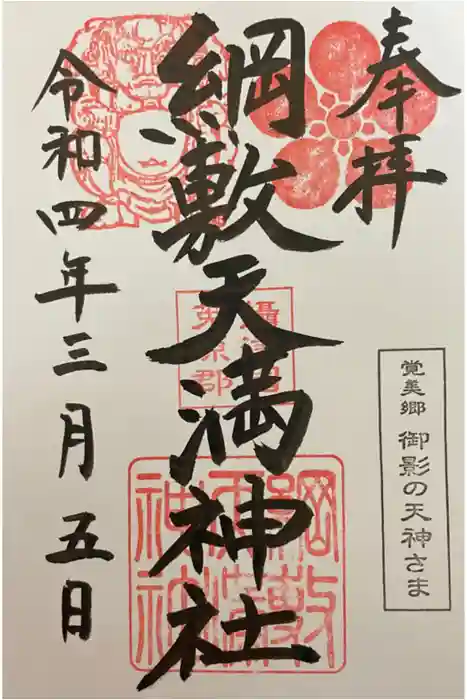 奉拝
覚美郷 御影の天神さま
綱敷天満神社
攝津国
菟原郡
綱敷
天満
神社
令和四年三月五日